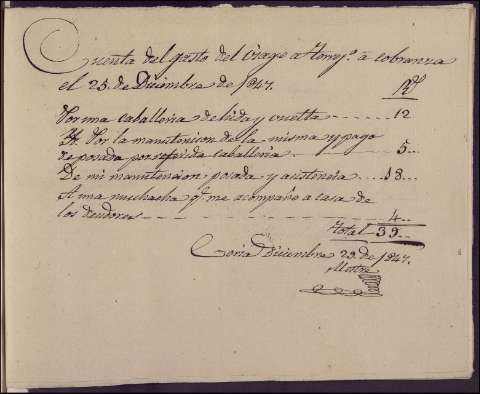 Cuenta del gasto del viage a Torrejº. a cobranza
el 25. de Diciembre de 1847.
Rs
Por una caballeria de hida y vuelta - - - - 12
Yt. Por la manutencion de la misma y pago
de posada por referida caballeria - - - - 5..
De mi manutencion posada y asistencia - - - 18...
A una muchacha q.e me acompaño a casa de
los deudores - - - - - - - - - 4..
Total - 39..
Coria Diciembre 29. de 1847.